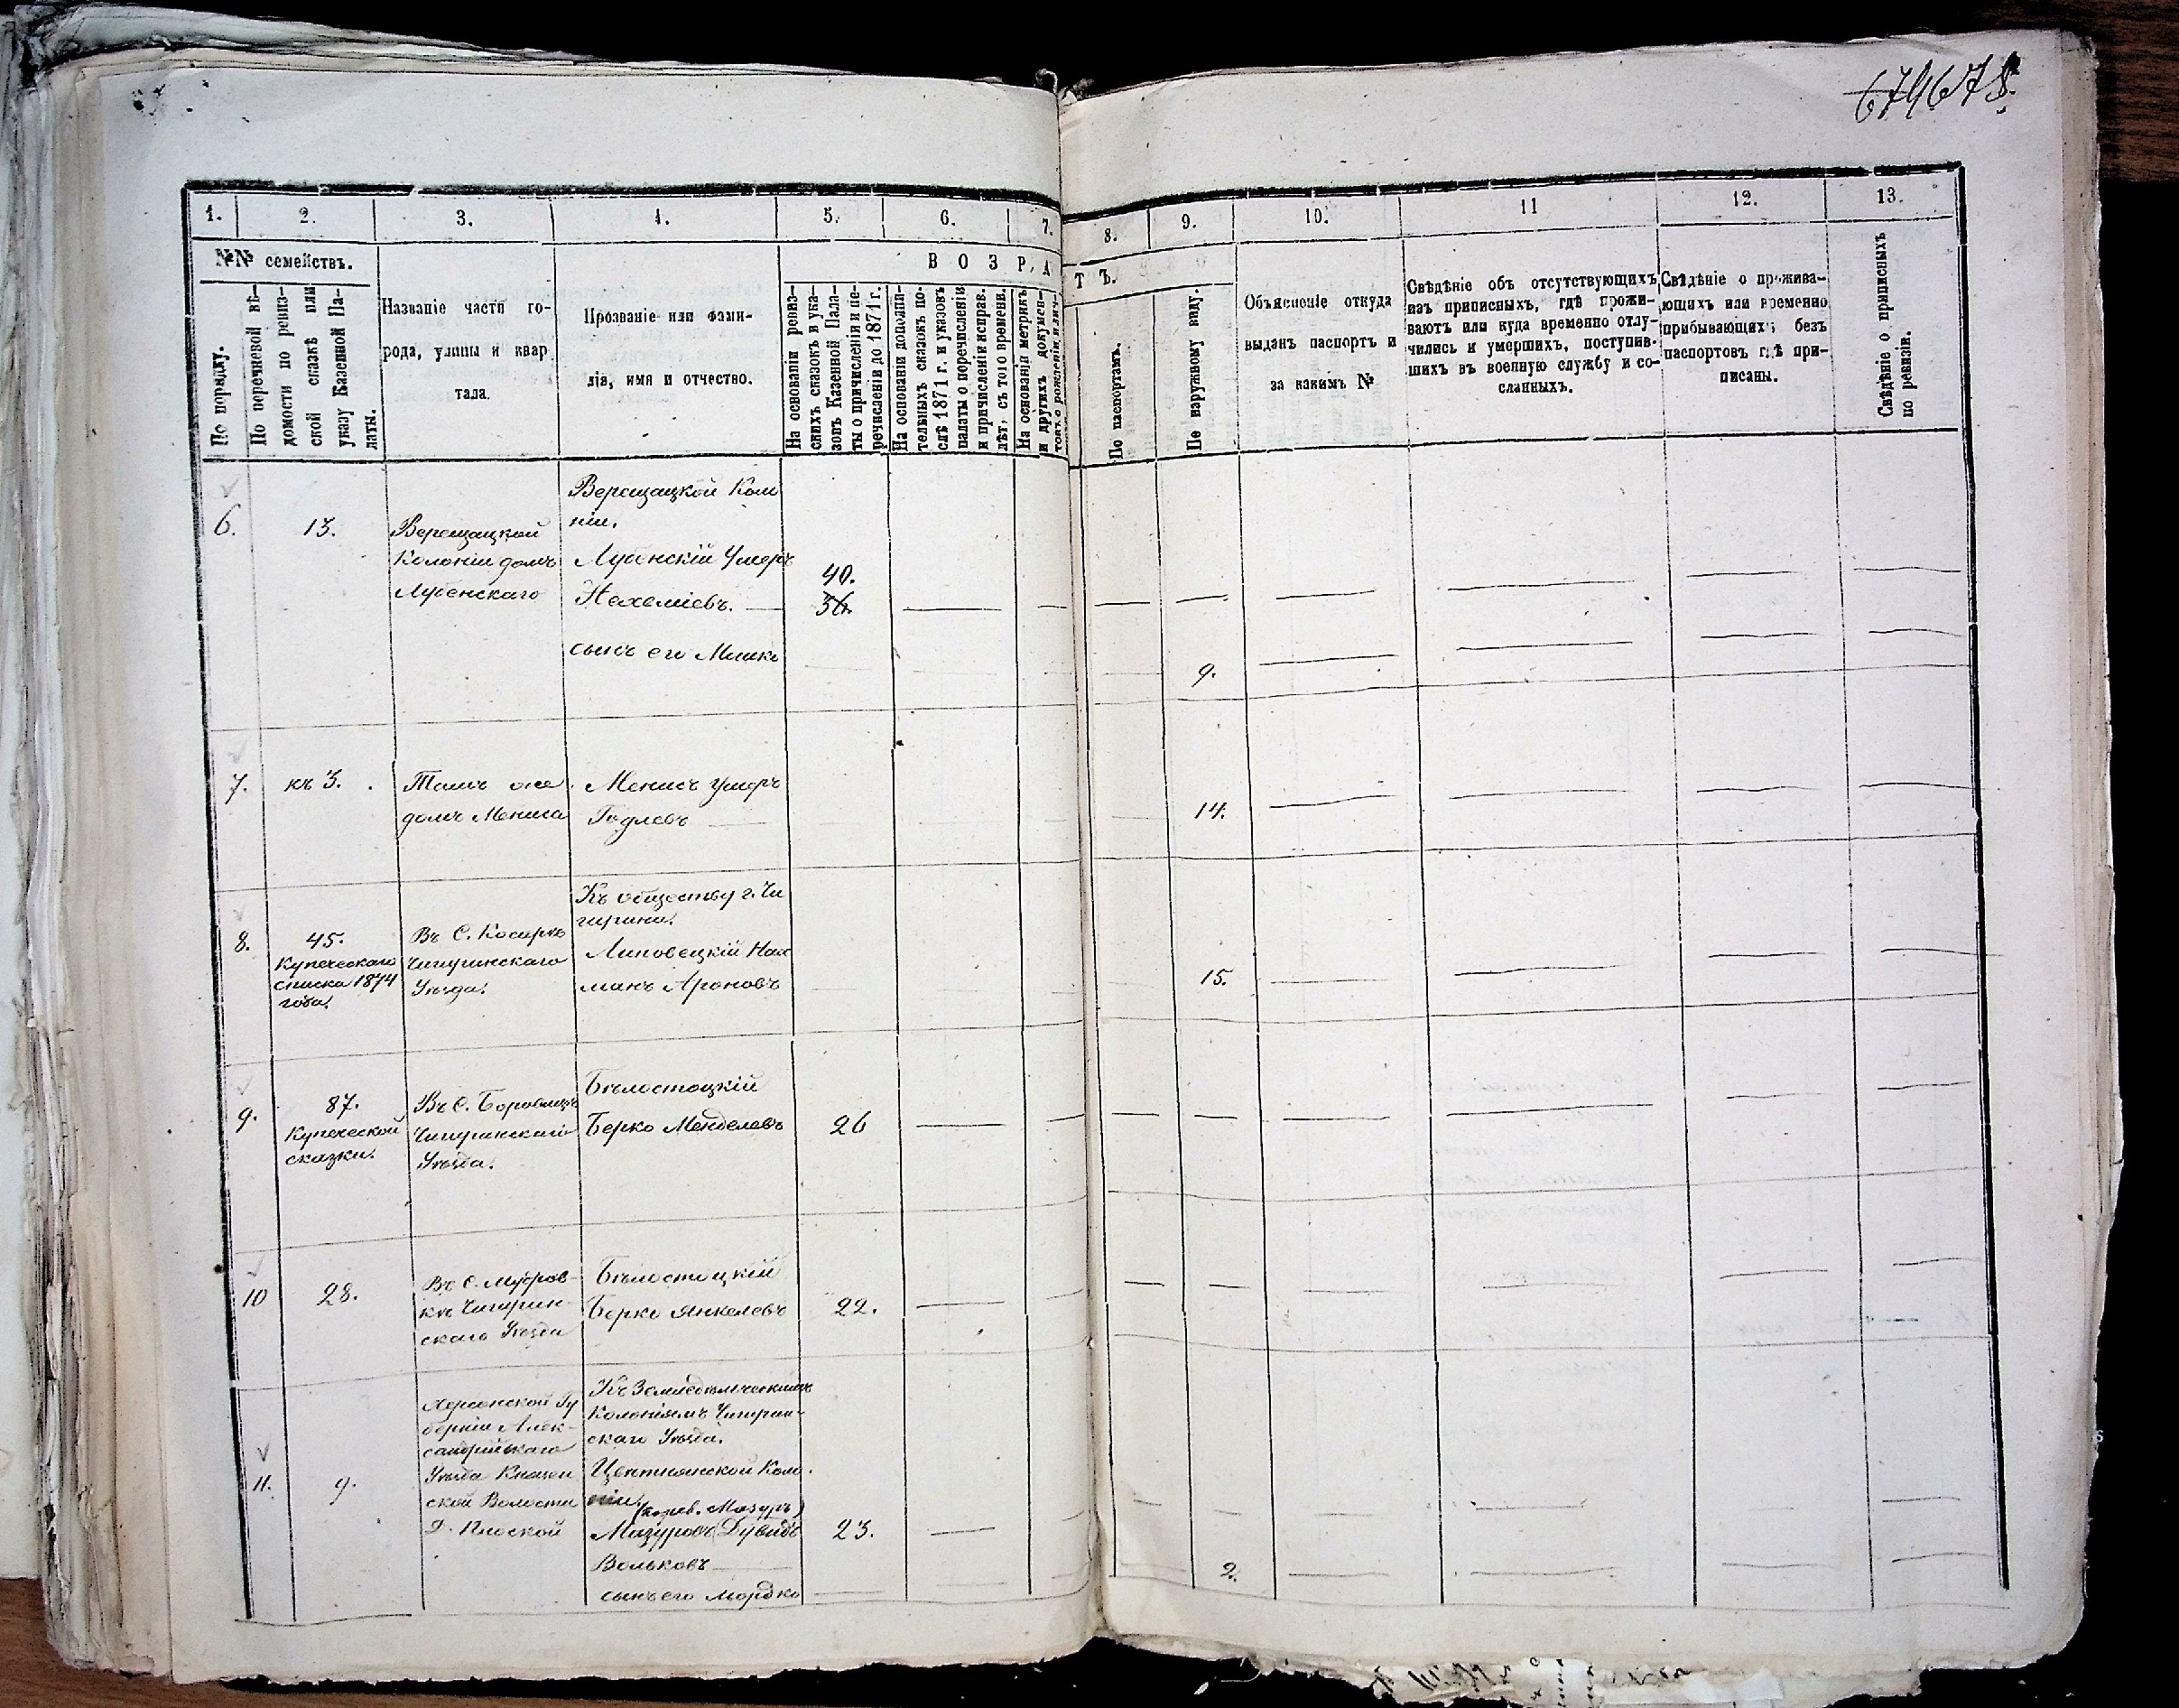 674 678.
1. 2. 3. 4. 5. 6. 7. 8. 9. 10. 11 12. 13.
№№ семействъ.
По порядку.
По перечневой вѣ-
домости по ревиз-
ской сказкѣ или
указу Казенной Па-
латы.
Названіе части го-
рода, улицы и квар
тала.
Прозваніе или фами-
лія, имя и отчество.
ВОЗРАСТЪ.
На основаніи ревиз-
скихъ сказокъ и ука-
зовъ Казенной Пала-
ты о причисленіи и пе-
речисленіи до 1871 г.
На основаніи дополни-
тельныхъ сказокъ по-
слѣ 1871 г. и указовъ
палаты о перечисленіи
и причисленіи исправ.
лѣт. съ того времени.
На основаніи метрикъ
и другихъ докумен-
товъ о рожденіи
По паспортамъ.
По наружному виду.
Объясненіе откуда
выданъ паспортъ и
за какимъ №
Свѣдѣніе объ отсутствующихъ
изъ приписныхъ, гдѣ прожи-
ваютъ или куда временно отлу-
чились и умершихъ, поступив-
шихъ въ военную службу и со-
сланныхъ.
Свѣдѣніе о прожива-
ющихъ или временно
прибывающихъ безъ
паспортовъ гдѣ при-
писаны.
Свѣдѣніе о приписныхъ
по ревизіи.
6.
13.
Верещацкой
Колоніи домъ
Лубенскаго
Верещацкой Коло
ніи.
Лубенскій Ушеръ
Нехеміевъ.
40.
36.
сынъ его Мошко
9.
7.
къ 3.
Тамъ же
домъ Мениса
Менисъ Ушеръ
Годлевъ
14.
8.
45.
Купеческаго
списка 1874
года.
Въ С. Косарѣ
Чигиринскаго
Уѣзда.
Къ обществу г. Чи
гирина.
Липовецкій Нах
манъ Ароновъ
15.
9.
87.
Купеческой
сказки.
Въ С. Боровицѣ
Чигиринскаго
Уѣзда.
Бѣлостоцкій
Берко Менделевъ
26
10
28.
Въ С. Мудров-
кѣ Чигирин-
скаго Уѣзда
Бѣлостоцкій
Берко Янкелевъ
22.
11.
9.
Херсонской Гу
берніи Алек-
сандрійскаго
Уѣзда
ской Волости
Д. Плоской
Къ Земледѣльческимъ
Колоніямъ Чигирин-
скаго Уѣзда.
Цвѣтнянской Коло
ніи.
Мазуръ)
Мазуровъ Дувидъ
Вольковъ
23.
сынъ его Мордко
2.